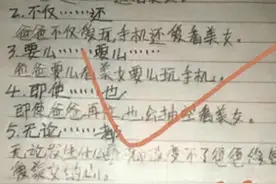 2.不仅……还
爸爸不仅像玩手机还像看美女。
3.要么……要么……
爸爸要么看美女要么玩手机。
4.即使……也
即使爸爸再 也会抽空看美女。
5.无论……都
无论发生什么 都改变不了爸爸
美女的心。